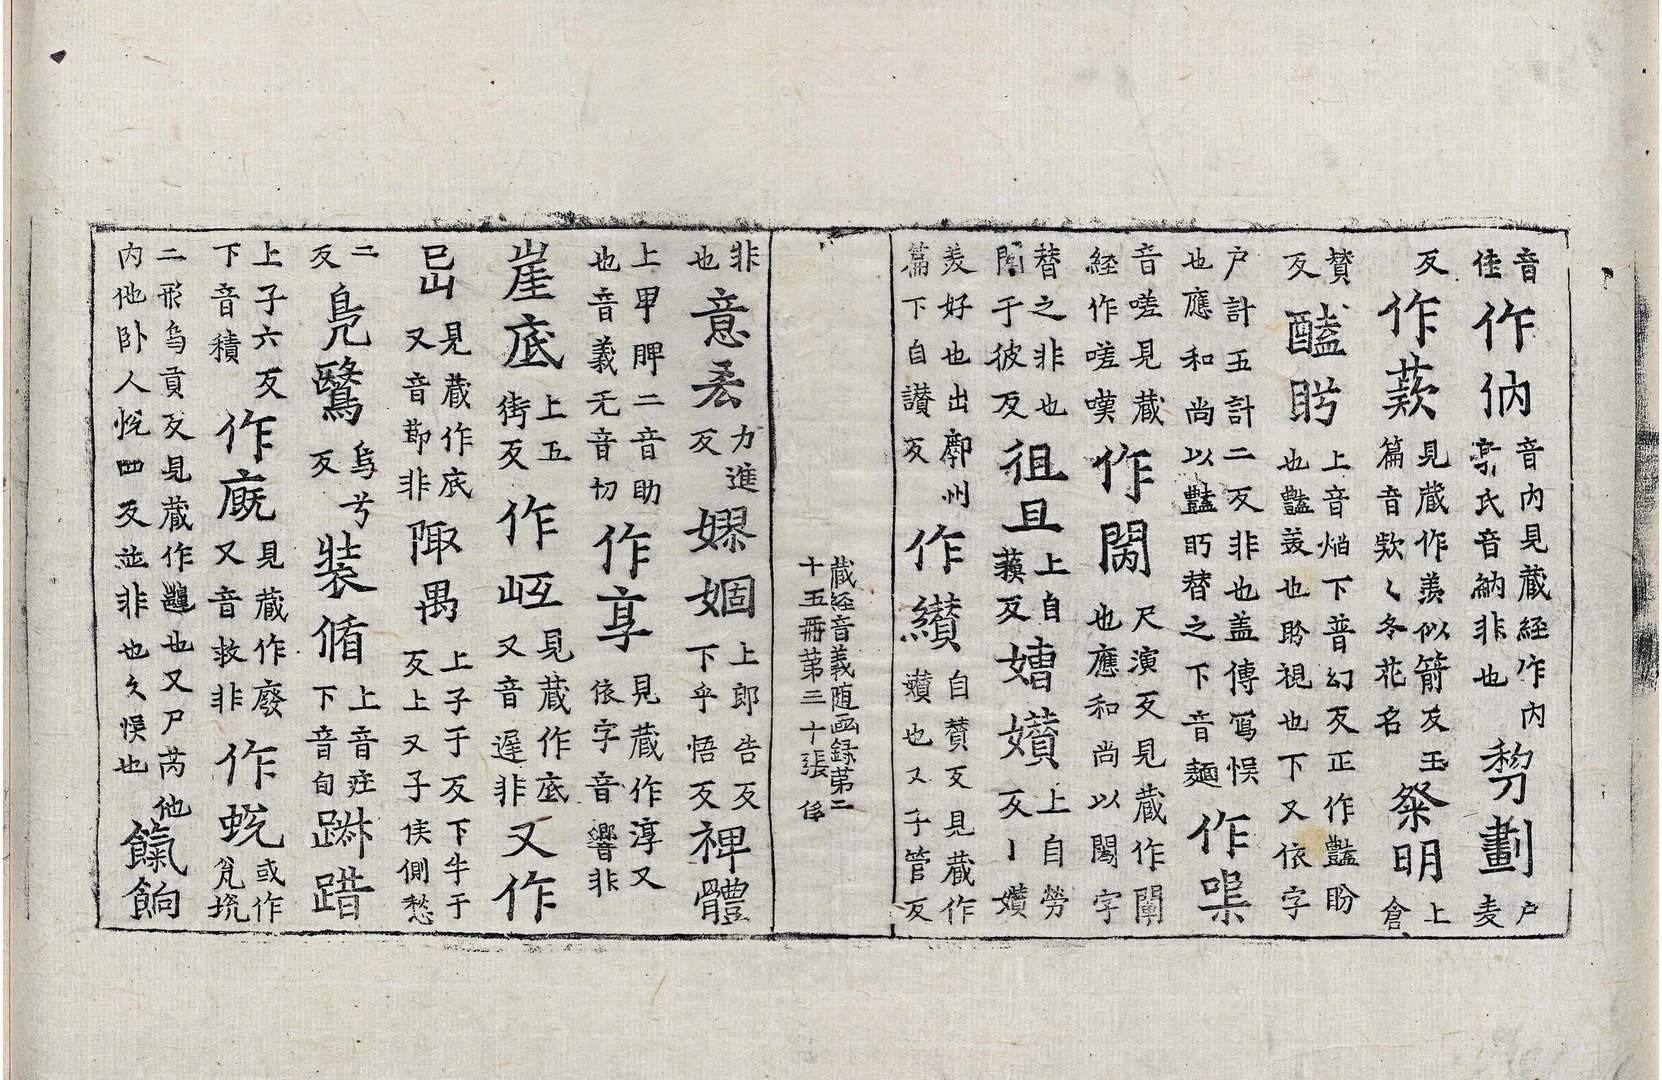 音佳作㑚音内見藏經作内㐮氏音納非也㓨劃户麦
反作蒺見藏作羨似箭反玉篇音欵欵冬花名粲明上倉
賛反醘盻上音焰下普幻反正作豔盼也豔羨也盼視也下又依字
户計五計二反非也盖傳寫悮也應和尚以豔眄替之下音麺作㖓
音嗟見藏經作嗟嘆作閖尺演反見藏作闡也應和尚以闖字
替之非也闖于彼反徂且上自蘓反㜖囋上自勞反丨㜺
羡好也出鄜州篇下自讃反作纉自賛反見藏作㜺也又子管反
藏經音義随函録第二十五冊第三十張 俗
非也意丟力進反嫪婟上郎告反下乎悟反裨體
上甲脾二音助也音義无音切作享見藏作淳又依字音響非
崖底上五街反作岴見藏作底又音遲非又作
㠯見藏作底又音莭非陬禺上子于反下牛于反上又子侯側愁
二反鳧鷖烏兮反裝脩上音庄下音旬踧踖
上子六反下音積作廐見藏作廢又音救非作蛻或作㲋㘬
二形烏貢反見藏作䶎也又尸芮他内他卧人悅四反並非也久悮也餼餉